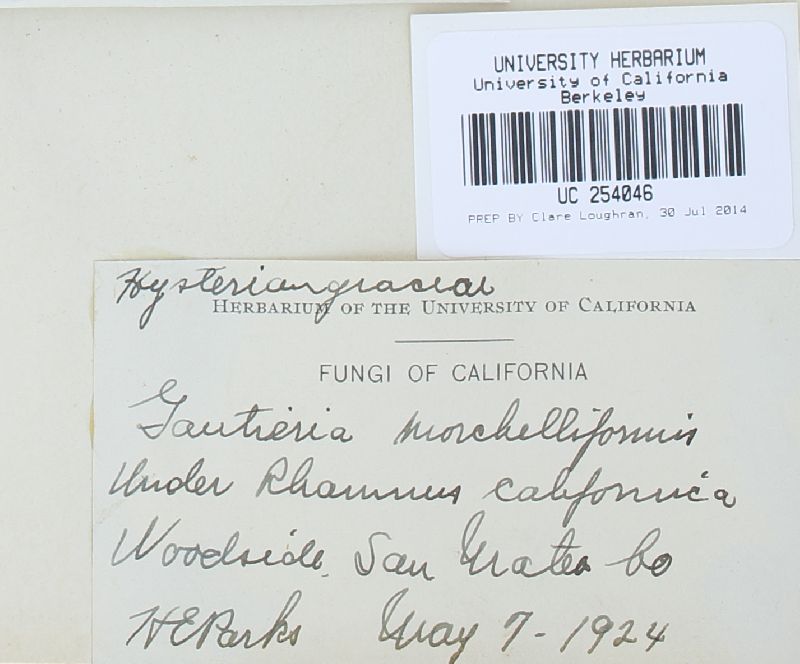 UNIVERSITY HERBARIUM
University of California
Berkeley
UC 254046
PREP BY Clare Loughran, 30 Jul 2014
Hysteriangiaceae
HERBARIUM OF THE UNIVERSITY OF CALIFORNIA
FUNGI OF CALIFORNIA
Gautieria morchelliformis
Under Rhamnus californica
Woodside. San Mateo Co
HEParks May 7-1924